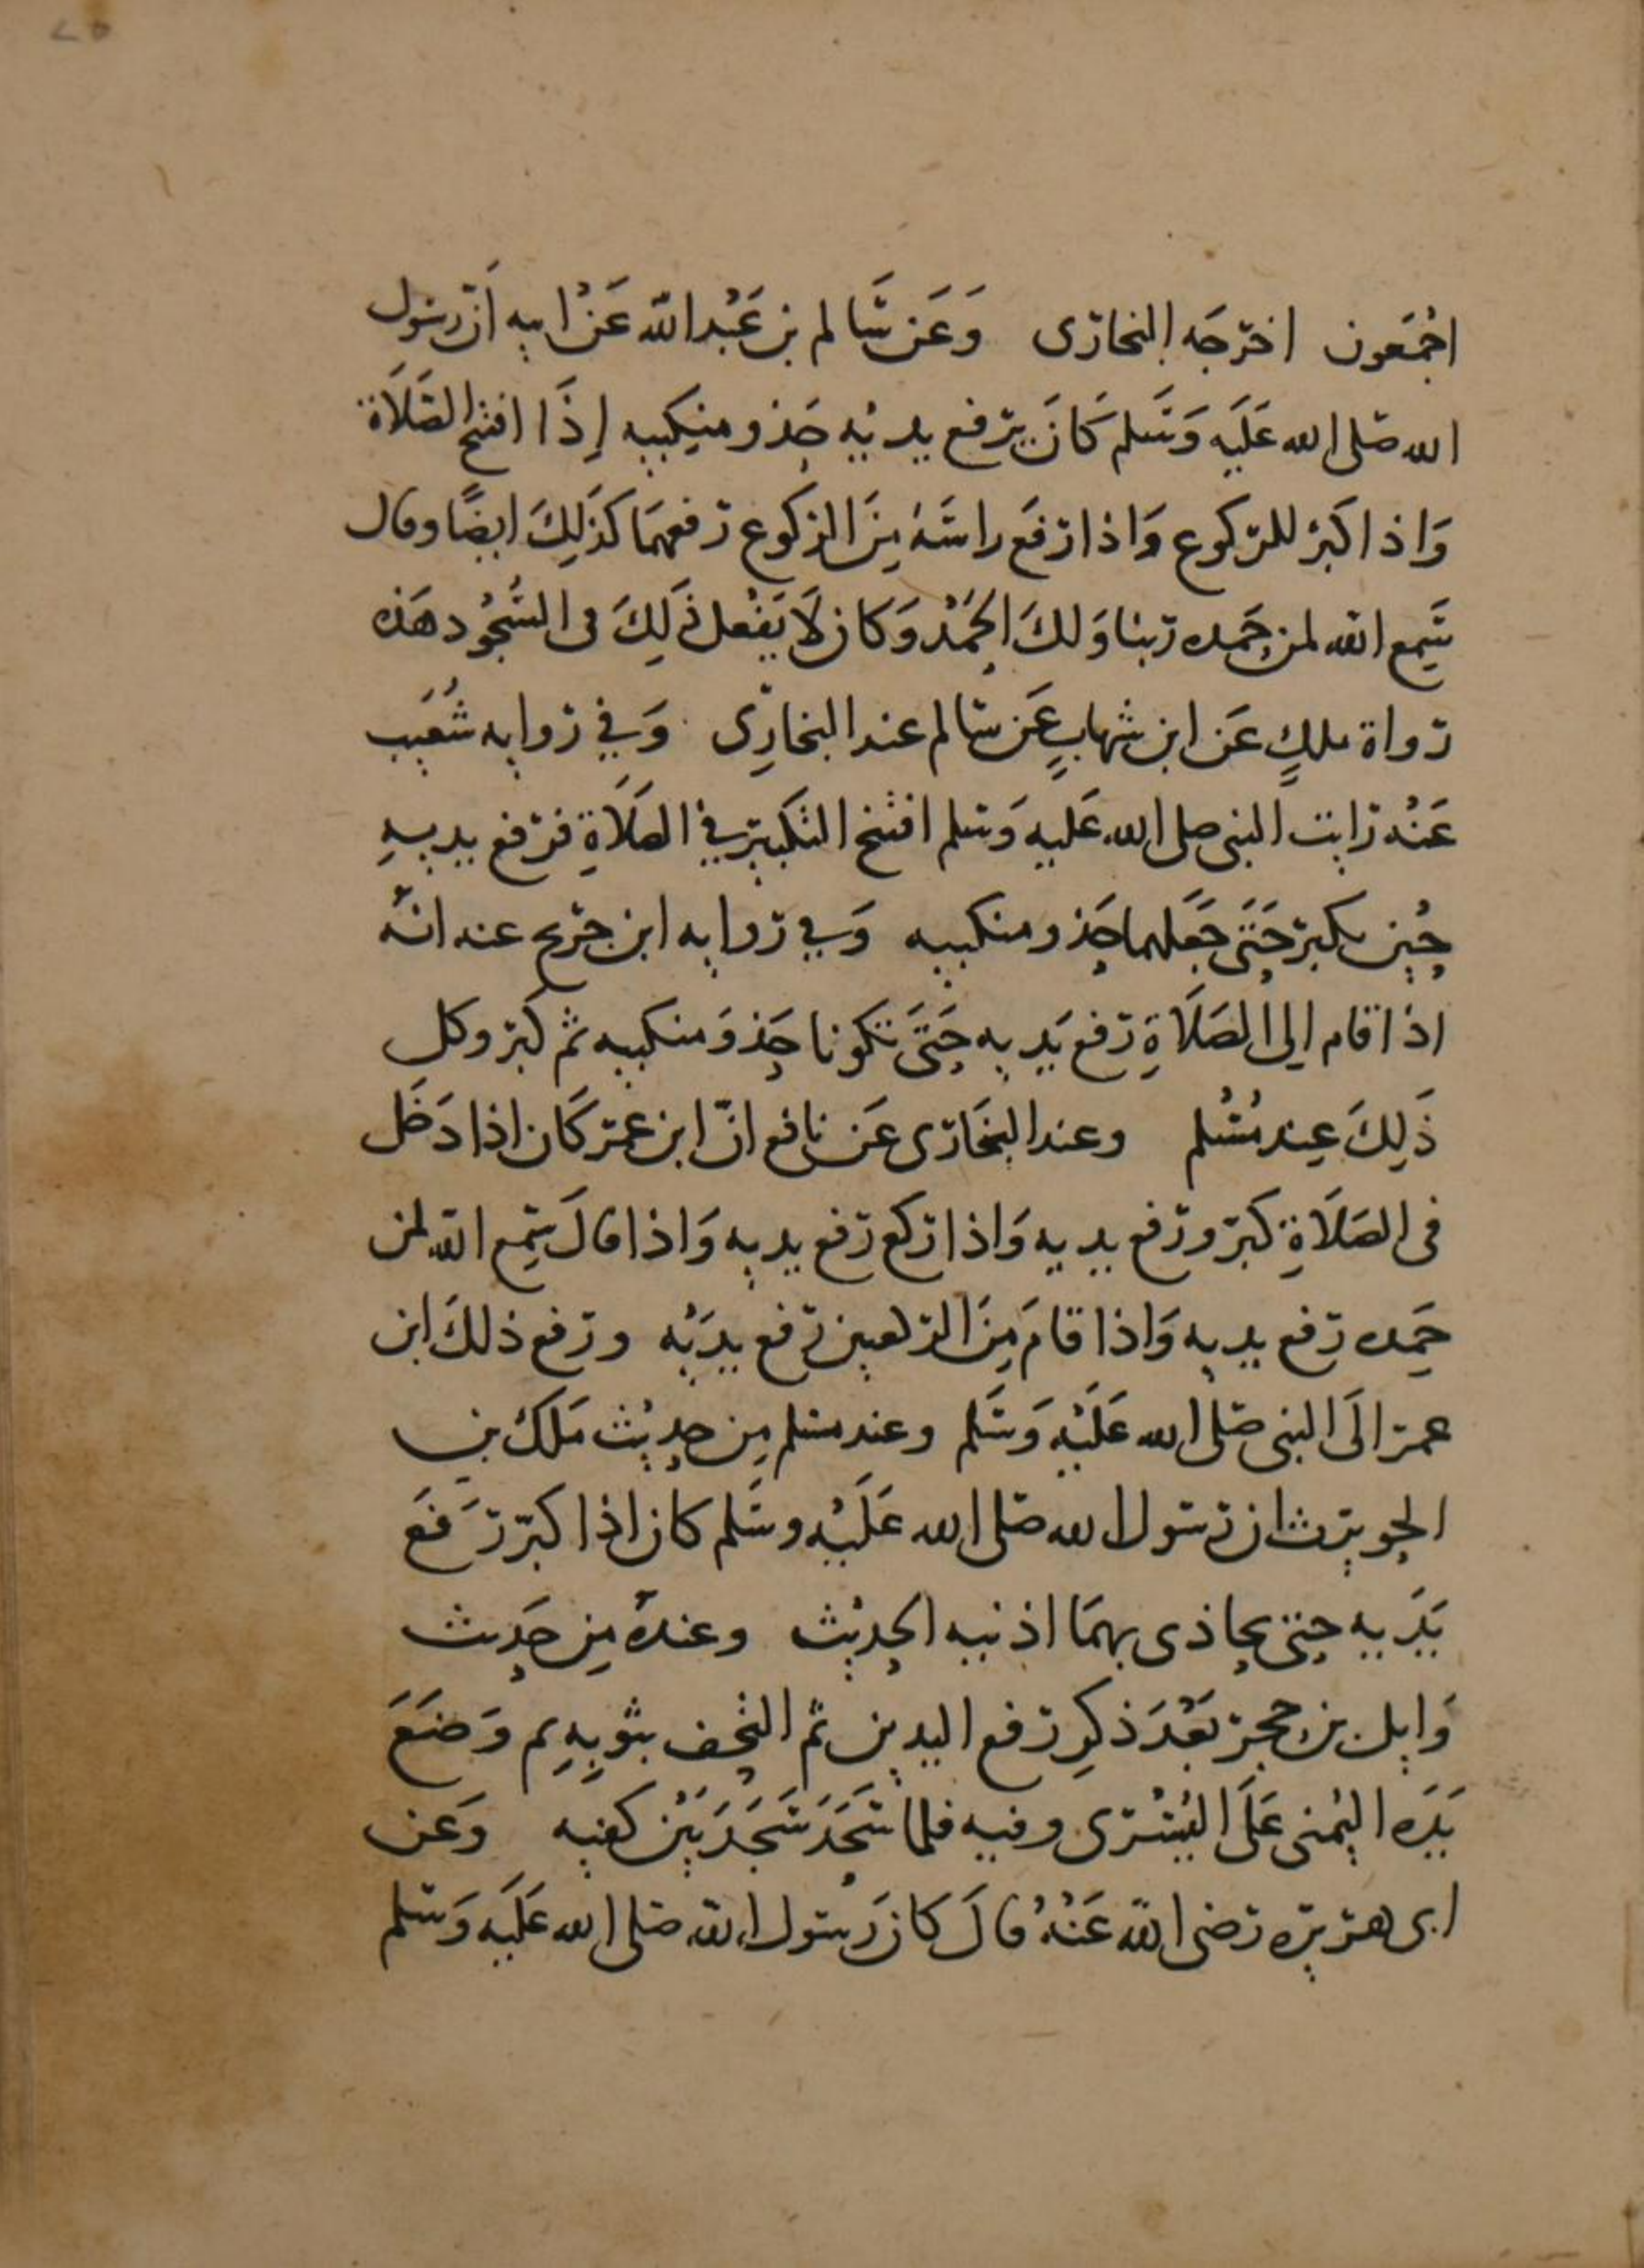 اجْمَعون اخرجَه البخارى وَعَن سَالم بن عَبْد الله عَنْ ابيه اَنّ رسُول
الله صَلى الله عَلَيه وَسَلم كَانَ يرفع يديْه حَذو منكِبيه إِذَا افتتح الصَّلَاة
وَاذا كَبرْ للركوع وَاذا رفَع راسَهُ مِنَ الركوع رفعهمَا كذَلِكَ ايضًا وقال
سَمِع الله لمن حَمِده ربنا وَلكَ الحَمْدُ وَكان لَا يَفْعل ذَلِكَ فى السُّجُود هَذه
رواة ملكٍ عَن ابن شهابٍ عَن سَالم عند البخارِى وَفي روايه شُعَيب
عَنْه رايت النبى صلى الله عَليه وَسلم افتتح التكبير في الصَلَاةِ فرفع يديهِ
حِيْن يكبر حَتَى جَعَلهما حَذو منكبيه وَفي روايه ابن جريج عنه انّه
اذا قام الى الصَلَاةِ رفع يَديه حَتَى تكونا حَذوَ منكبيه ثم كبر وكل
ذَلِكَ عِند مُسْلم وعند البخَارى عَن نافع انّ ابن عمر كَان اذا دَخَل
فى الصَلَاةِ كبر ورفع يديه وَاذا ركع رفع يديه وَاذا قالَ سَمِع الله لمن
حَمِده رفع يديه وَاذا قامَ مِنَ الركعتين رفع يدَيْه ورفع ذلكَ ابن
عمر الَى النبى صَلى الله عَلَيْه وَسَلم وعند مسلم مِن حديْث مَلكْ بن
الحويرث ان رسَول الله صَلى الله عَلَيْه وسَلم كان اذا كبّر رَفَعَ
يَدَيه حتى يحاذى بهمَا اذنيه الحديْث وعندهُ مِن حَديث
وَايل بن حجر بَعْدَ ذكرِ رفع اليدين ثم التحف بثوبِهِ ثم وَضَعَ
يَدَه اليُمنى عَلَى اليُسْرى وفيه فلما سَجَدَ سَجَدَ بَيْن كفيه وَعَن
ابى هريره رَضى الله عَنْهُ قالَ كان رَسُول الله صَلى الله عَلَيه وَسَلم